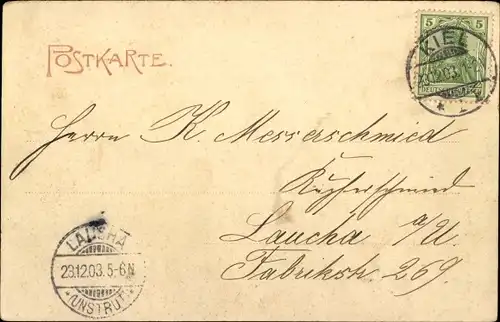 POSTKARTE.
5 5
KIEL
12.03.
DEUTSCHES REICH
Herrn K. Messerschmied
Kupferschmied
Laucha a/U.
Fabrikstr 269.
LAUCHA
23.12.03. 5-6N
*(UNSTRUT)*